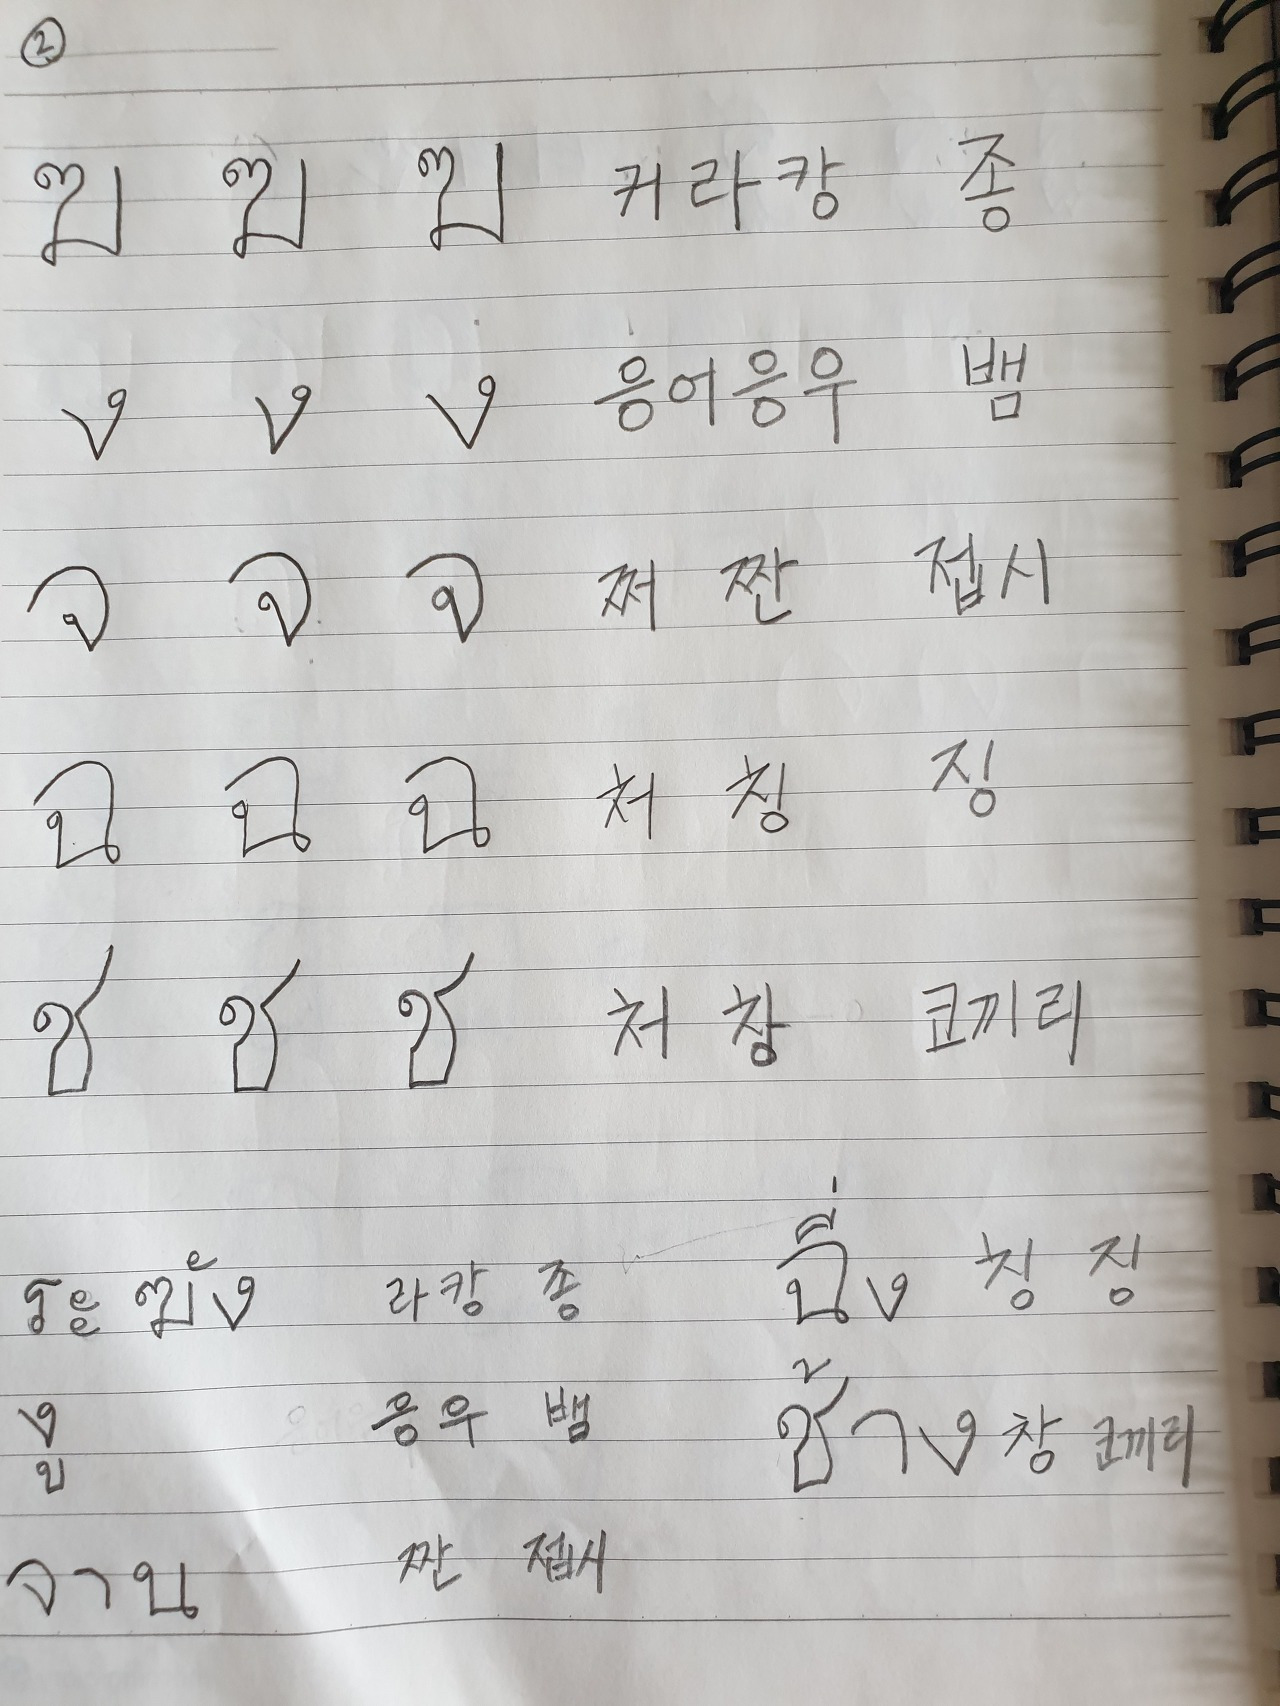 ②
ฆ ฆ ฆ 커 라 캉 종
ง ง ง 응어 응우 뱀
จ จ จ 쩌 짠 접시
ฉ ฉ ฉ 처 칭 징
ช ช ช 처 창 코끼리
ระฆัง 라캉 종 ฉิ่ง 칭 징
งู 응우 뱀 ช้าง 창 코끼리
จาน 짠 접시